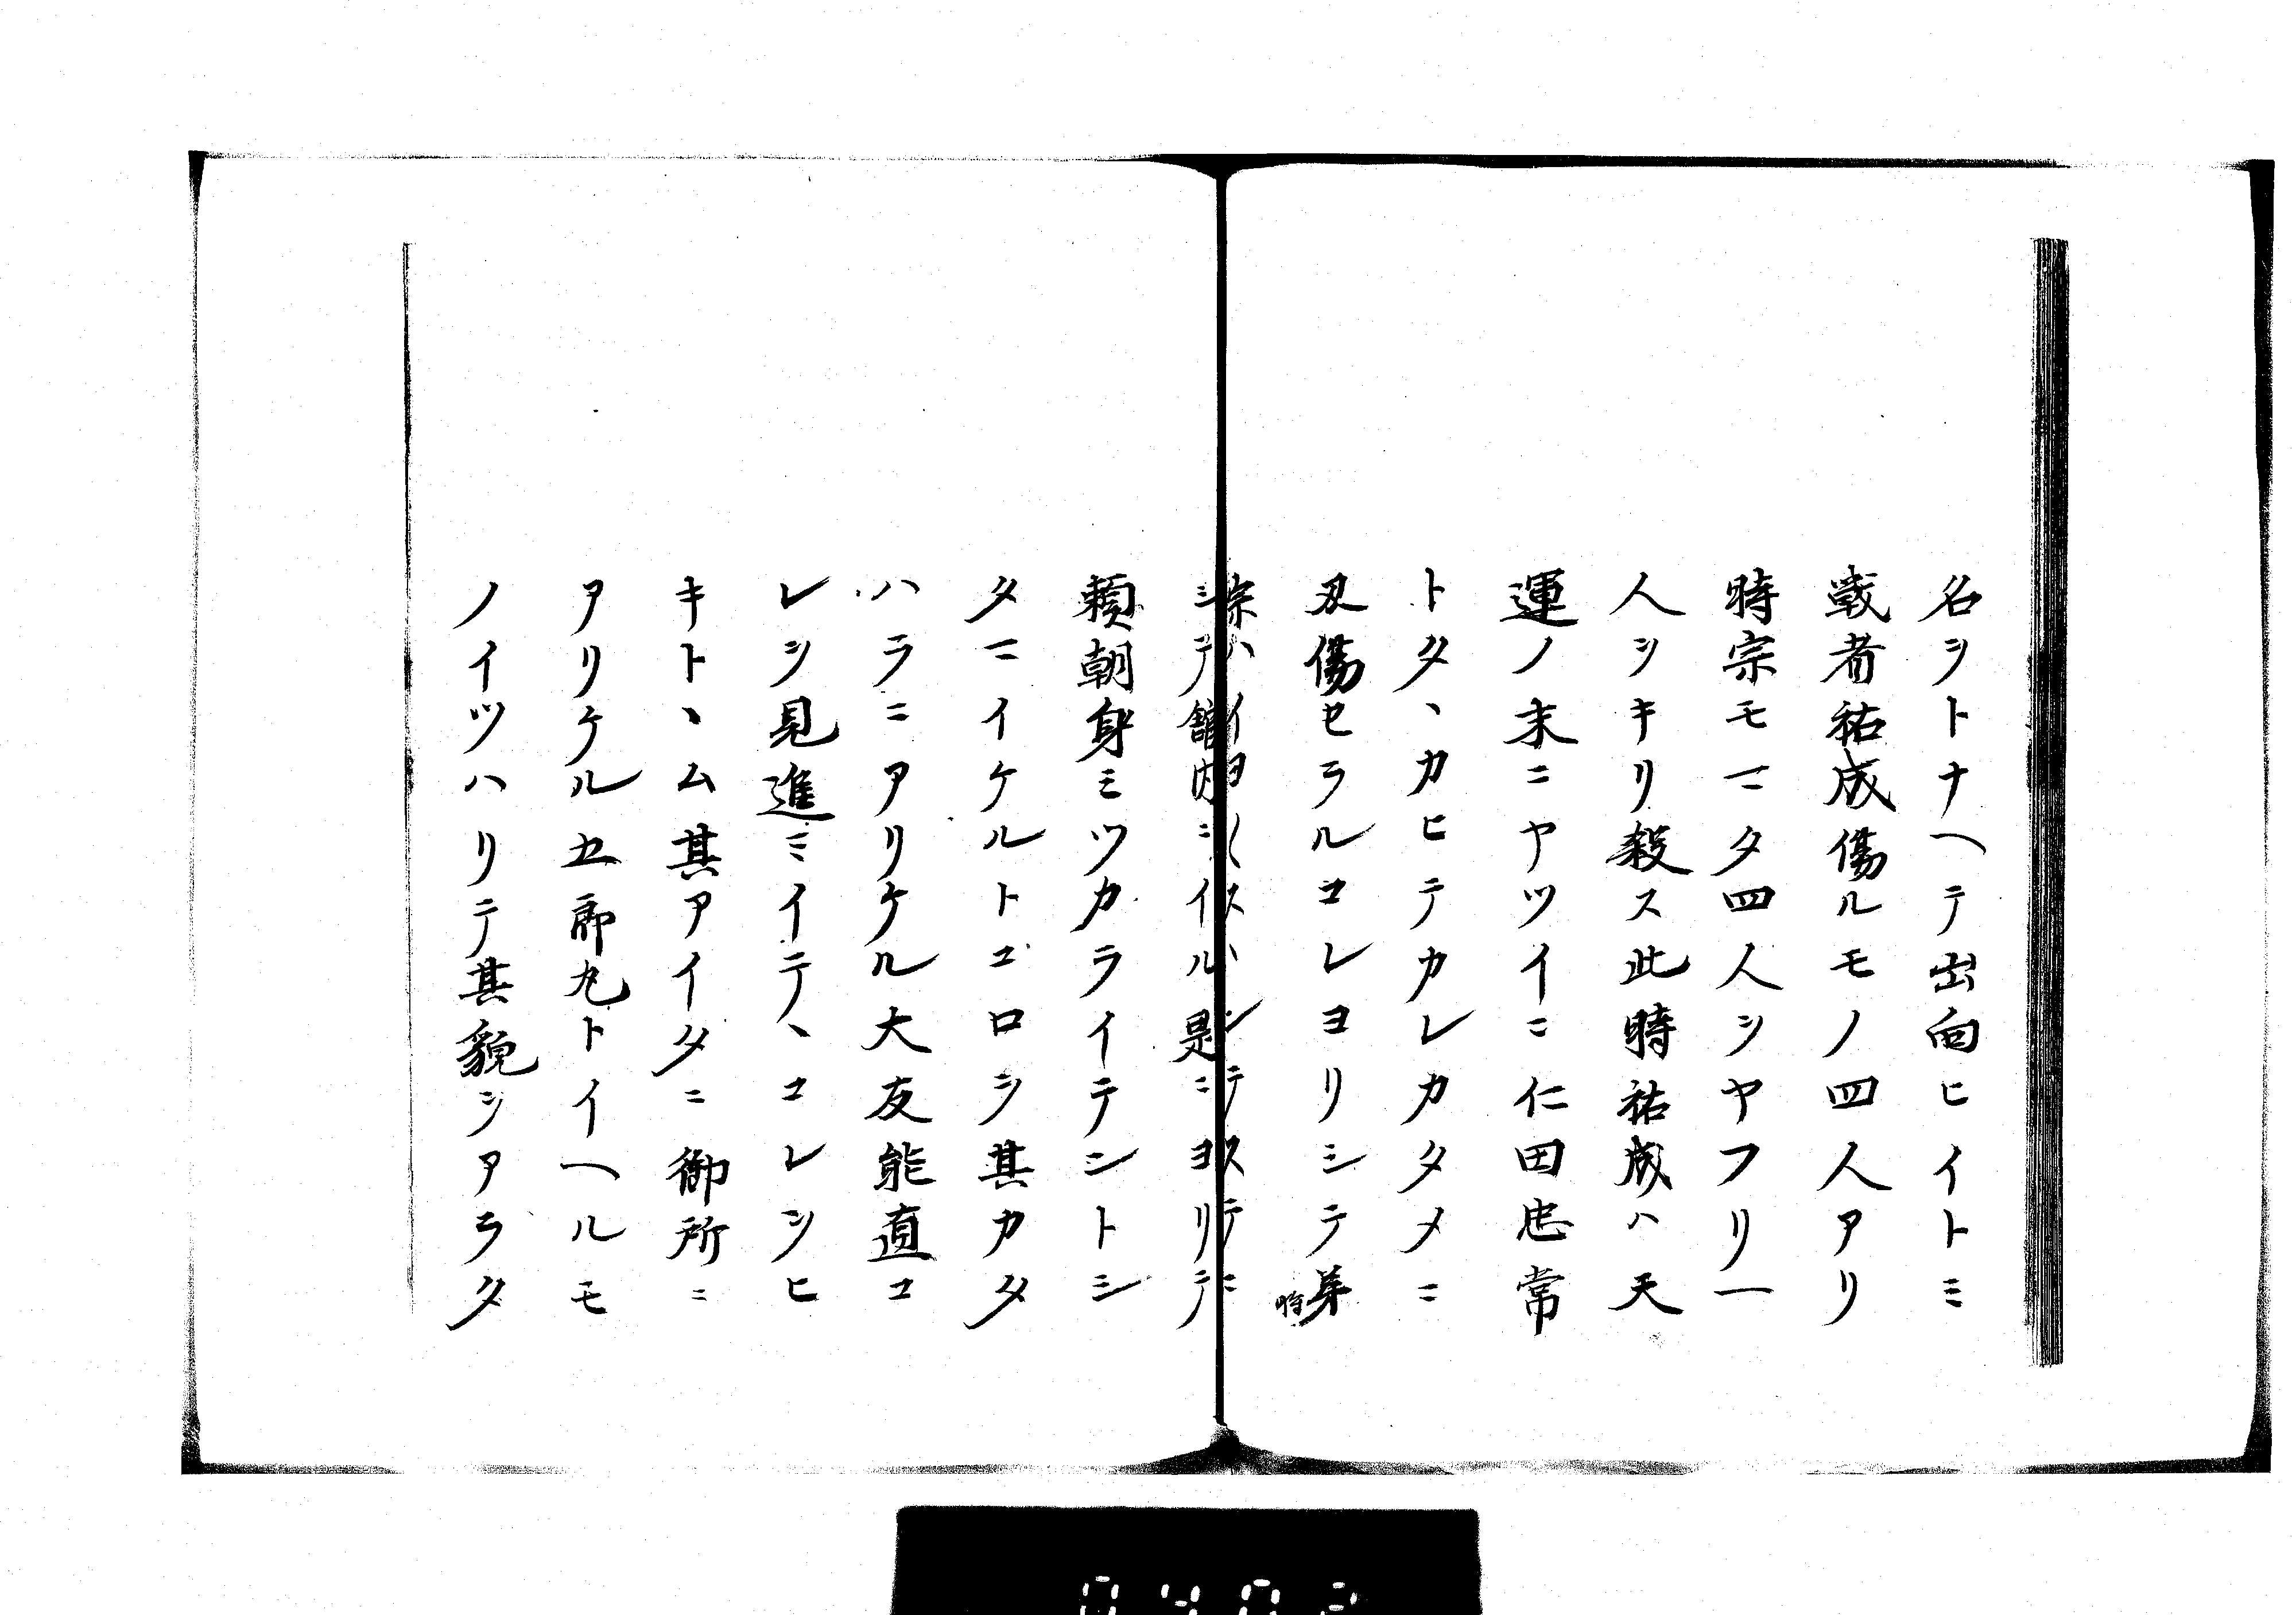 名ヲトナヘテ出向ヒイトミ
戦者祐成傷ルモノ四人アリ
時宗モマタ四人ヲヤフリ一
人ヲキリ殺ス此時祐成ハ天
運ノ末ニヤツイニ仁田忠常
トタヽカヒテカレカタメニ
刃傷セラルコレヨリシテ弟時
宗ハイヨ〱スヽンテステニ
シテ舘内ニイル是ニヨリテ
頼朝身ミツカライテントシ
タマイケルトコロシ其カタ
ハラニアリケル大友能直コ
レヲ見進ミイテヽコレヲヒ
キトヽム其アイタニ御所ニ
アリケル五郎丸トイヘルモ
ノイツハリテ其貌ヲアラタ